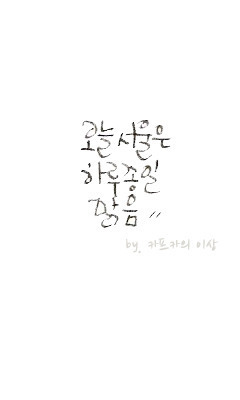 오늘 서울은
하루종일
맑음〃
by. 카프카의 이상